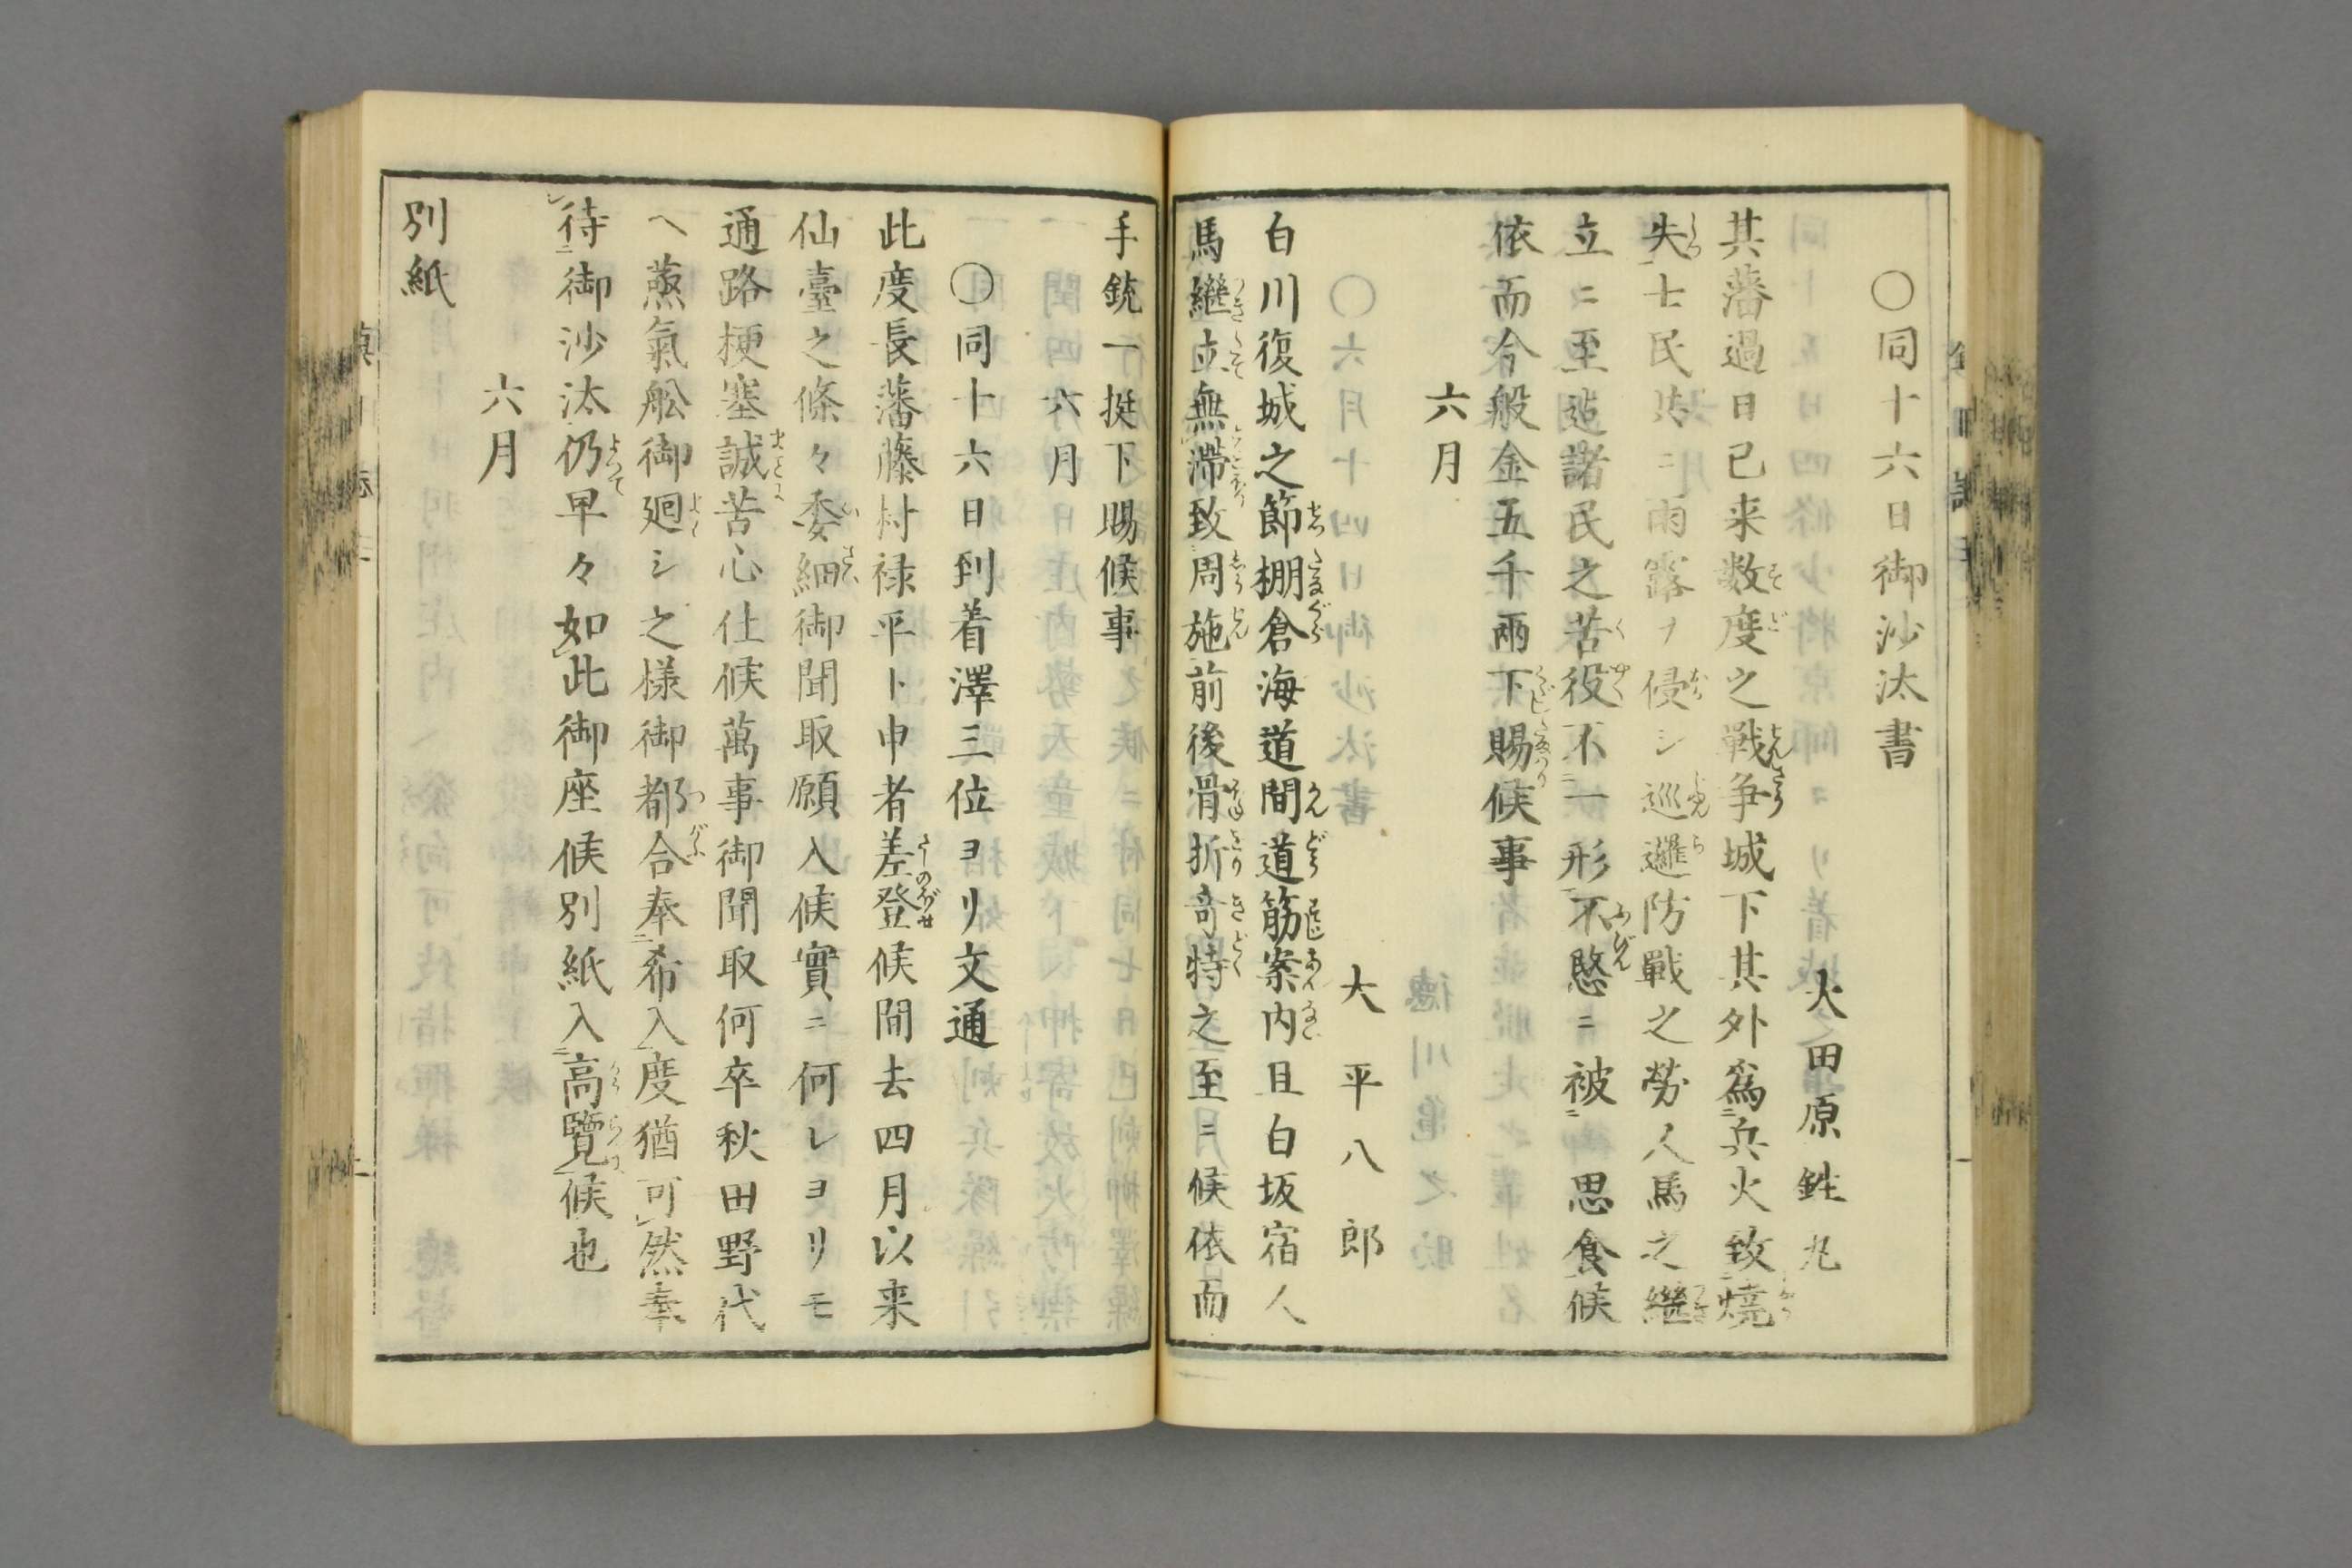 〇同十六日御沙汰書
大田原鉎丸
其藩過日已来数度之戰争城下其外爲兵火致燒
失士民共ニ雨露ヲ侵シ巡邏防戰之勞人馬之繼
立ニ至迠諸民之苦役不一形不愍ニ被 思食候
依而今般金五千兩下賜候事
六月
大平八郎
白川復城之節棚倉海道間道筋案内且白坂宿人
馬繼立無滯致周施前後骨折竒特之至ニ候依而
手銃一挺下賜候事
六月
〇同十六日到着澤三位ヨリ文通
此度長藩藤村禄平ト申者差登候間去四月以来
仙臺之條々委細御聞取願入候實ニ何レヨリモ
通路梗塞誠苦心仕候萬事御聞取何卒秋田野代
ヘ蒸氣舩御廻シ之様御都合奉希入度猶可然奉
待御沙汰仍早々如此御座候別紙入高覽候也
六月
別紙